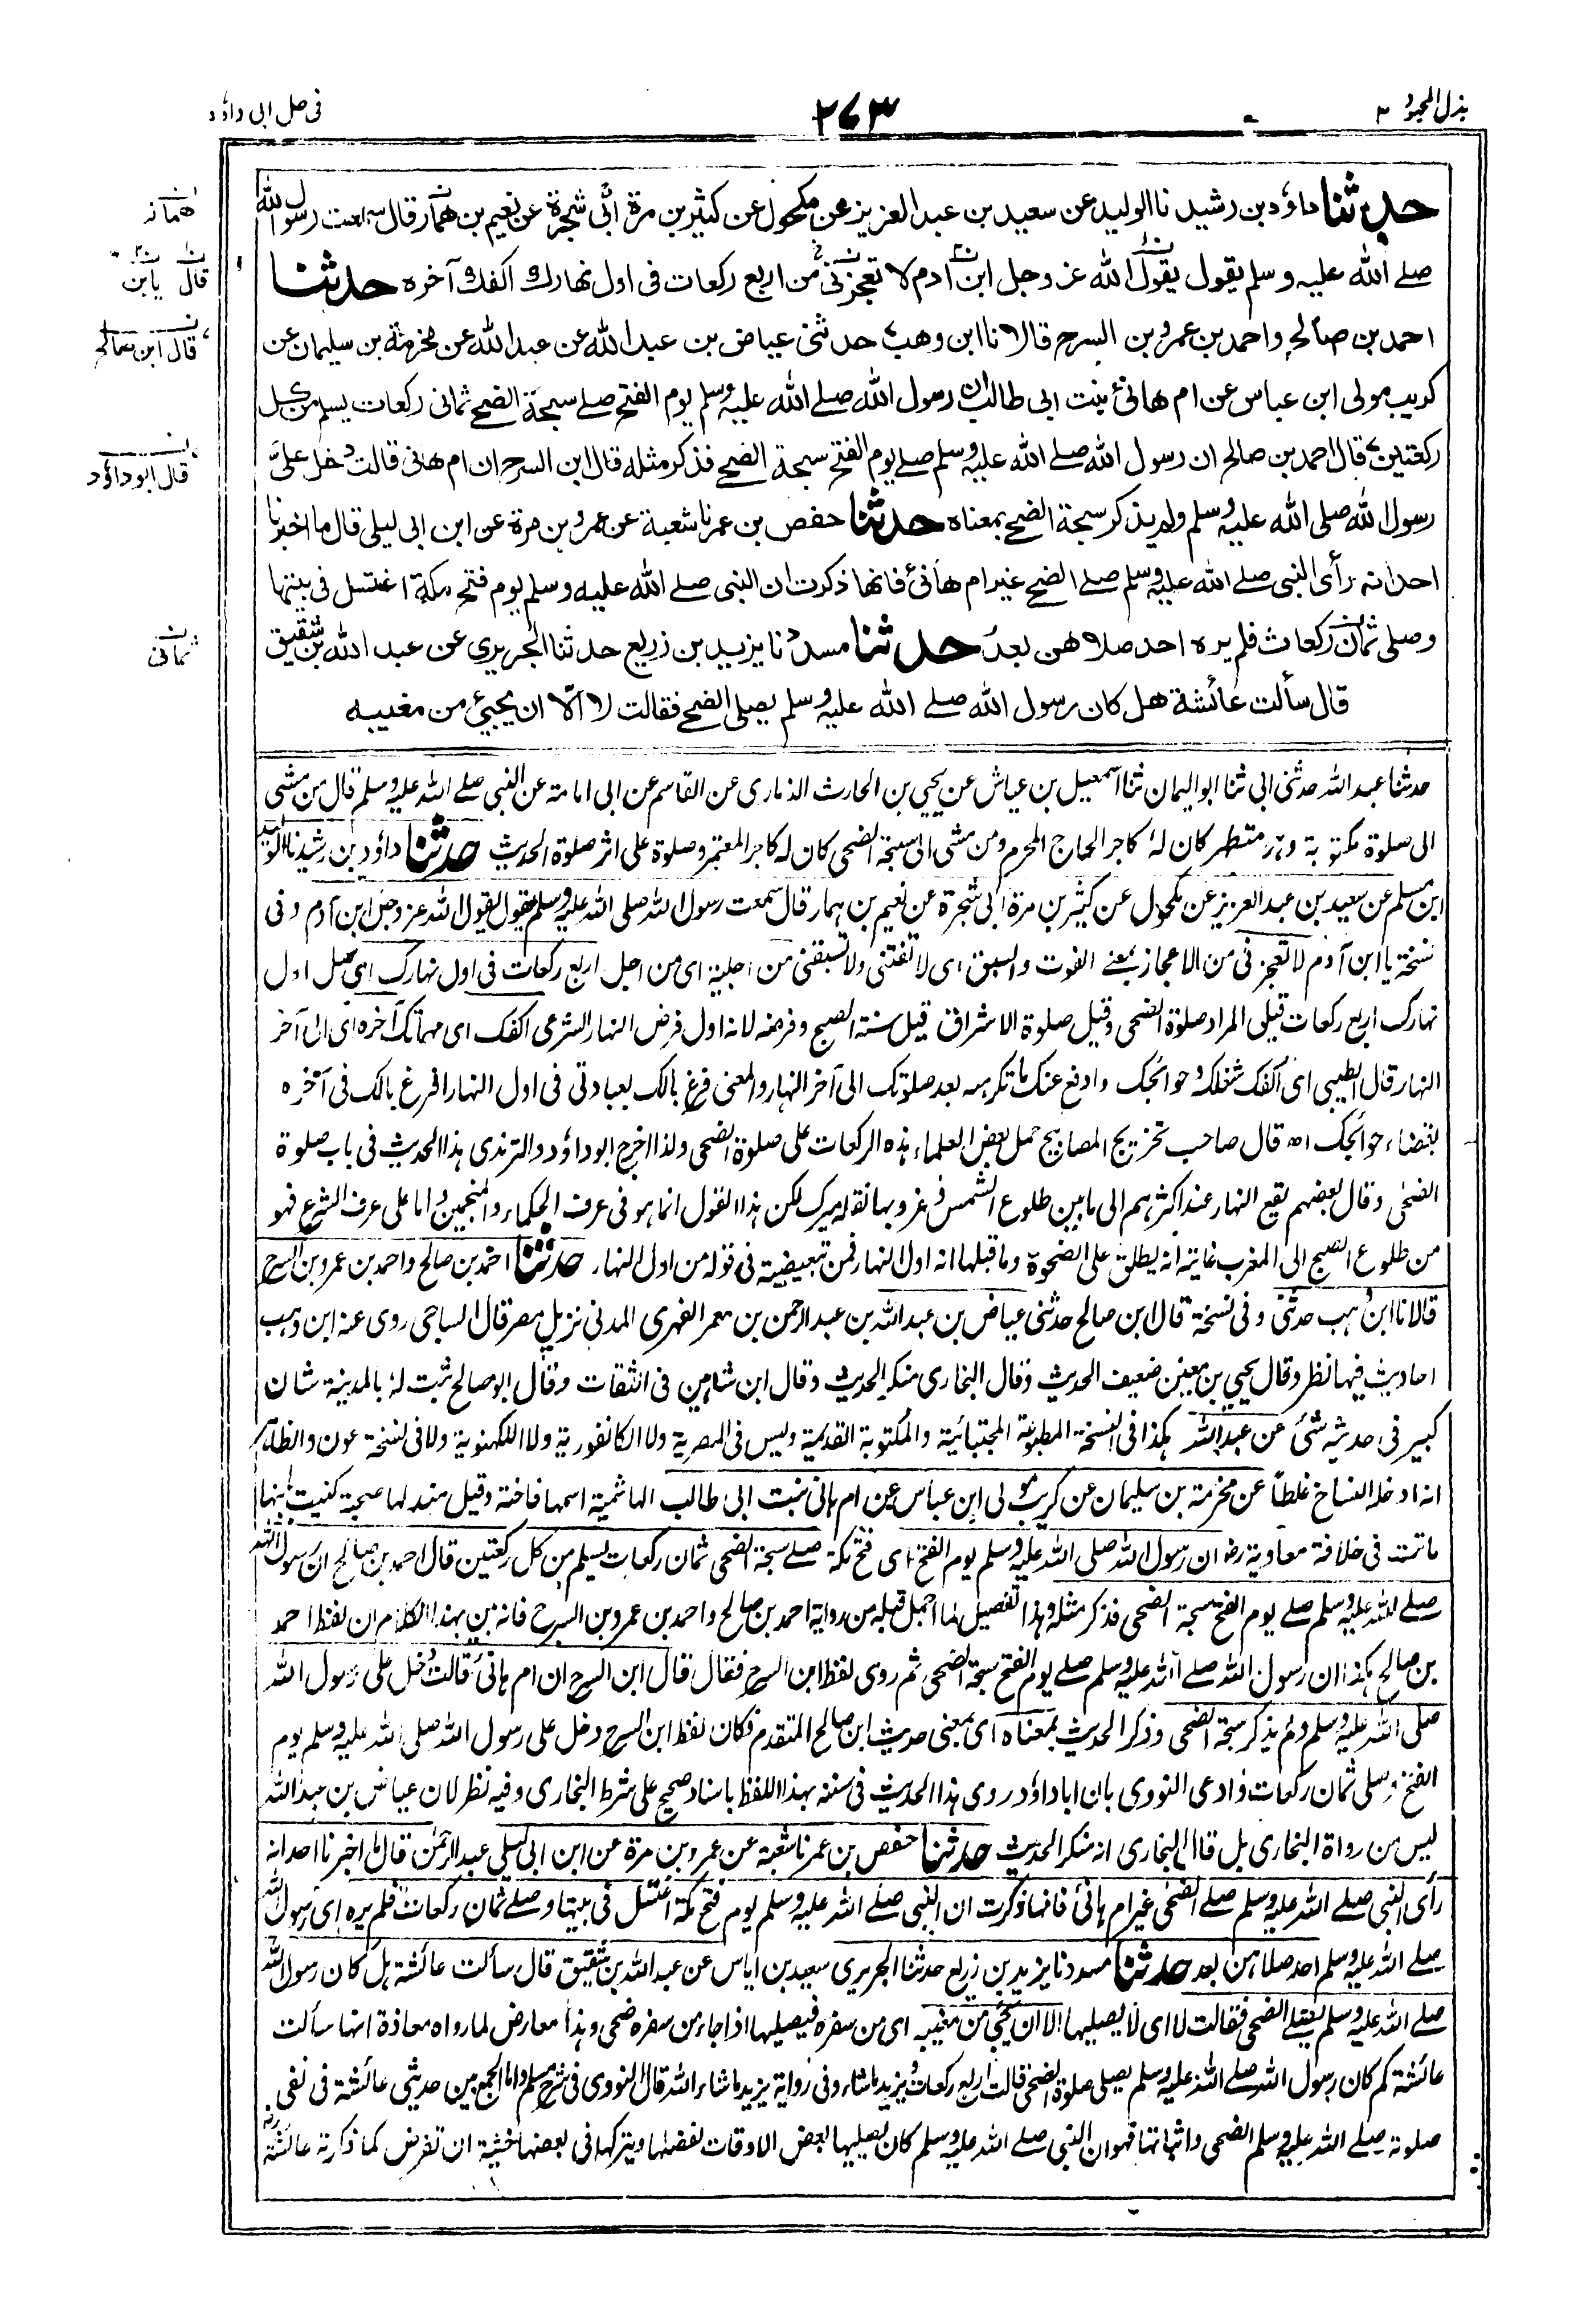 بذل المجهود ٢
٢٧٣
فى حل ابى داؤد
حدثنا داؤد بن رشيد نا الوليد عن سعيد بن عبد العزيز عن مكحول عن كثير بن مرة ابى شجرة عن نعيم بن همار قال سمعت رسول الله
صلے الله عليه وسلم يقول يقول الله عز وجل ابن ادم لا تعجزنى من اربع ركعات فى اول نهارك اكفك آخره حدثنا
احمد بن صالح واحمد بن عمرو بن السرح قالا نا ابن وهب حدثنى عياض بن عبد الله عن عبد الله عن مخرمة بن سليمان عن
كريب مولى ابن عباس عن ام هانئ بنت ابى طالب ان رسول الله صلے الله عليه وسلم يوم الفتح صلے سبحة الضحے ثمانى ركعات يسلم من كل
ركعتين قال احمد بن صالح ان رسول الله صلے الله عليه وسلم صلے يوم الفتح سبحة الضحے فذكر مثله قال ابن السرح ان ام هانى قالت دخل علىّ
رسول الله صلى الله عليه وسلم ولم يذكر سبحة الضحے بمعناه حدثنا حفص بن عمر نا شعبة عن عمرو بن مرة عن ابن ابى ليلى قال ما اخبرنا
احد انه رأى النبى صلے الله عليه وسلم صلے الضحے غير ام هانئ فانها ذكرت ان النبى صلے الله عليه وسلم يوم فتح مكة اغتسل فى بيتها
وصلى ثمان ركعات فلم يره احد صلاهن بعد حدثنا مسدد نا يزيد بن زريع حدثنا الجريرى عن عبد الله بن شقيق
قال سألت عائشة هل كان رسول الله صلے الله عليه وسلم يصلى الضحے فقالت لا الّا ان يجيئ من مغيبه
همانه
قال يابن
قال ابن صالح
قال ابو داؤد
ثمانى
حدثنا عبد الله حدثنى ابى ثنا ابو اليمان ثنا اسمعيل بن عياش عن يحيى بن الحارث الذمارى عن القاسم عن ابى امامة عن النبى صلے الله عليه وسلم قال من مشى
الى صلوة مكتوبة وهو متطهر كان له كاجر الحاج المحرم ومن مشى الى سبحة الضحى كان له كاجر المعتمر وصلوة على اثر صلوة الحديث حدثنا داؤد بن رشيد نا الوليد
ابن مسلم عن سعيد بن عبد العزيز عن مكحول عن كثير بن مرة ابى شجرة عن نعيم بن همار قال سمعت رسول الله صلى الله عليه وسلم يقول يقول الله عز وجل ابن آدم وفى
نسخة يا ابن آدم لا تعجزنى من الاعجاز بمعنے الفوت والسبق اى لا تفتنى ولا تسبقنى من اجلية اى من اجل اربع ركعات فى اول نهارك اى صل اول
نهارك اربع ركعات قيل المراد صلوة الضحى وقيل صلوة الاشراق قيل سنة الصبح وفرضه لانه اول فرض النهار الشرعى اكفك اى مهماتك آخره اى الى آخر
النهار قال الطيبى اى اكفك شغلك وحوائجك وادفع عنك ما تكرهه بعد صلوتك الى آخر النهار والمعنى فرغ بالك بعبادتى فى اول النهار افرغ بالك فى آخره
بقضاء حوائجك اه قال صاحب تخريج المصابيح حمل بعض العلماء هذه الركعات على صلوة الضحى ولذا اخرج ابو داؤد والترمذى هذا الحديث فى باب صلوة
الضحى وقال بعضهم يقع النهار عند اكثرهم الى ما بين طلوع الشمس وغروبها نقله ميرك لكن هذا القول انما هو فى عرف الحكماء والمنجمين واما على عرف الشرع فهو
من طلوع الصبح الى المغرب غايته انه يطلق على الضحوة وما قبلها انه اول النهار فمن تبعيضية فى قوله من اول النهار حدثنا احمد بن صالح واحمد بن عمرو بن السرح
قالا نا ابن وهب حدثنى وفى نسخة قال ابن صالح حدثنى عياض بن عبد الله بن عبد الرحمن بن معمر الفهرى المدنى نزيل مصر قال الساجى روى عنه ابن وهب
احاديث فيها نظر وقال يحيى بن معين ضعيف الحديث وقال البخارى منكر الحديث وقال ابن شاهين فى الثقات وقال ابو صالح ثبت له بالمدينة شان
كبير فى حديثه شئ عن عبد الله هكذا فى النسخة المطبوعة المجتبائية والمكتوبة القديمة وليس فى المصرية ولا الكانفورية ولا اللكهنوية ولا فى نسخة عون والظاهر
انه ادخله النساخ غلطاً عن مخرمة بن سليمان عن كريب مولى ابن عباس عن ام هانئ بنت ابى طالب الهاشمية اسمها فاختة وقيل هند لها صحبة كنيت بابنها
ماتت فى خلافة معاوية رض ان رسول الله صلى الله عليه وسلم يوم الفتح اى فتح مكة صلے سبحة الضحى ثمان ركعات يسلم من كل ركعتين قال احمد بن صالح ان رسول الله
صلے الله عليه وسلم صلے يوم الفتح سبحة الضحى فذكر مثله وهذا تفصيل لما اجمل قبله من رواية احمد بن صالح واحمد بن عمرو بن السرح فانه بين بهذا الكلام ان لفظ احمد
بن صالح هكذا ان رسول الله صلے الله عليه وسلم صلے يوم الفتح سبحة الضحى ثم روى لفظ ابن السرح فقال قال ابن السرح ان ام هانئ قالت دخل على رسول الله
صلى الله عليه وسلم ولم يذكر سبحة الضحى وذكر الحديث بمعناه اى بمعنى حديث ابن صالح المتقدم فكان لفظ ابن السرح دخل على رسول الله صلى الله عليه وسلم يوم
الفتح وصلى ثمان ركعات وادعى النووى بان ابا داؤد روى هذا الحديث فى سننه بهذا اللفظ باسناد صحيح على شرط البخارى وفيه نظر لان عياض بن عبد الله
ليس من رواة البخارى بل قال البخارى انه منكر الحديث حدثنا حفص بن عمر نا شعبة عن عمرو بن مرة عن ابن ابى ليلى عبد الرحمن قال ما اخبرنا احد انه
رأى النبى صلے الله عليه وسلم صلے الضحى غير ام هانئ فانها ذكرت ان النبى صلے الله عليه وسلم يوم فتح مكة اغتسل فى بيتها وصلے ثمان ركعات فلم يره اى رسول الله
صلے الله عليه وسلم احد صلاهن بعد حدثنا مسدد نا يزيد بن زريع حدثنا الجريرى سعيد بن اياس عن عبد الله بن شقيق قال سألت عائشة هل كان رسول الله
صلے الله عليه وسلم يصلے الضحى فقالت لا اى لا يصليها الا ان يجئ من مغيبه اى من سفره فيصليها اذا جاء من سفره ضحى وهذا معارض لما رواه معاذة انها سألت
عائشة كم كان رسول الله صلے الله عليه وسلم يصلى صلوة الضحى قالت اربع ركعات ويزيد ما شاء وفى رواية يزيد ما شاء الله قال النووى فى شرح مسلم واما الجمع بين حديثى عائشة فى نفى
صلوته صلے الله عليه وسلم الضحى واثباتها فهو ان النبى صلے الله عليه وسلم كان يصليها بعض الاوقات لفضلها ويتركها فى بعضها خشية ان تفرض كما ذكرته عائشة رض